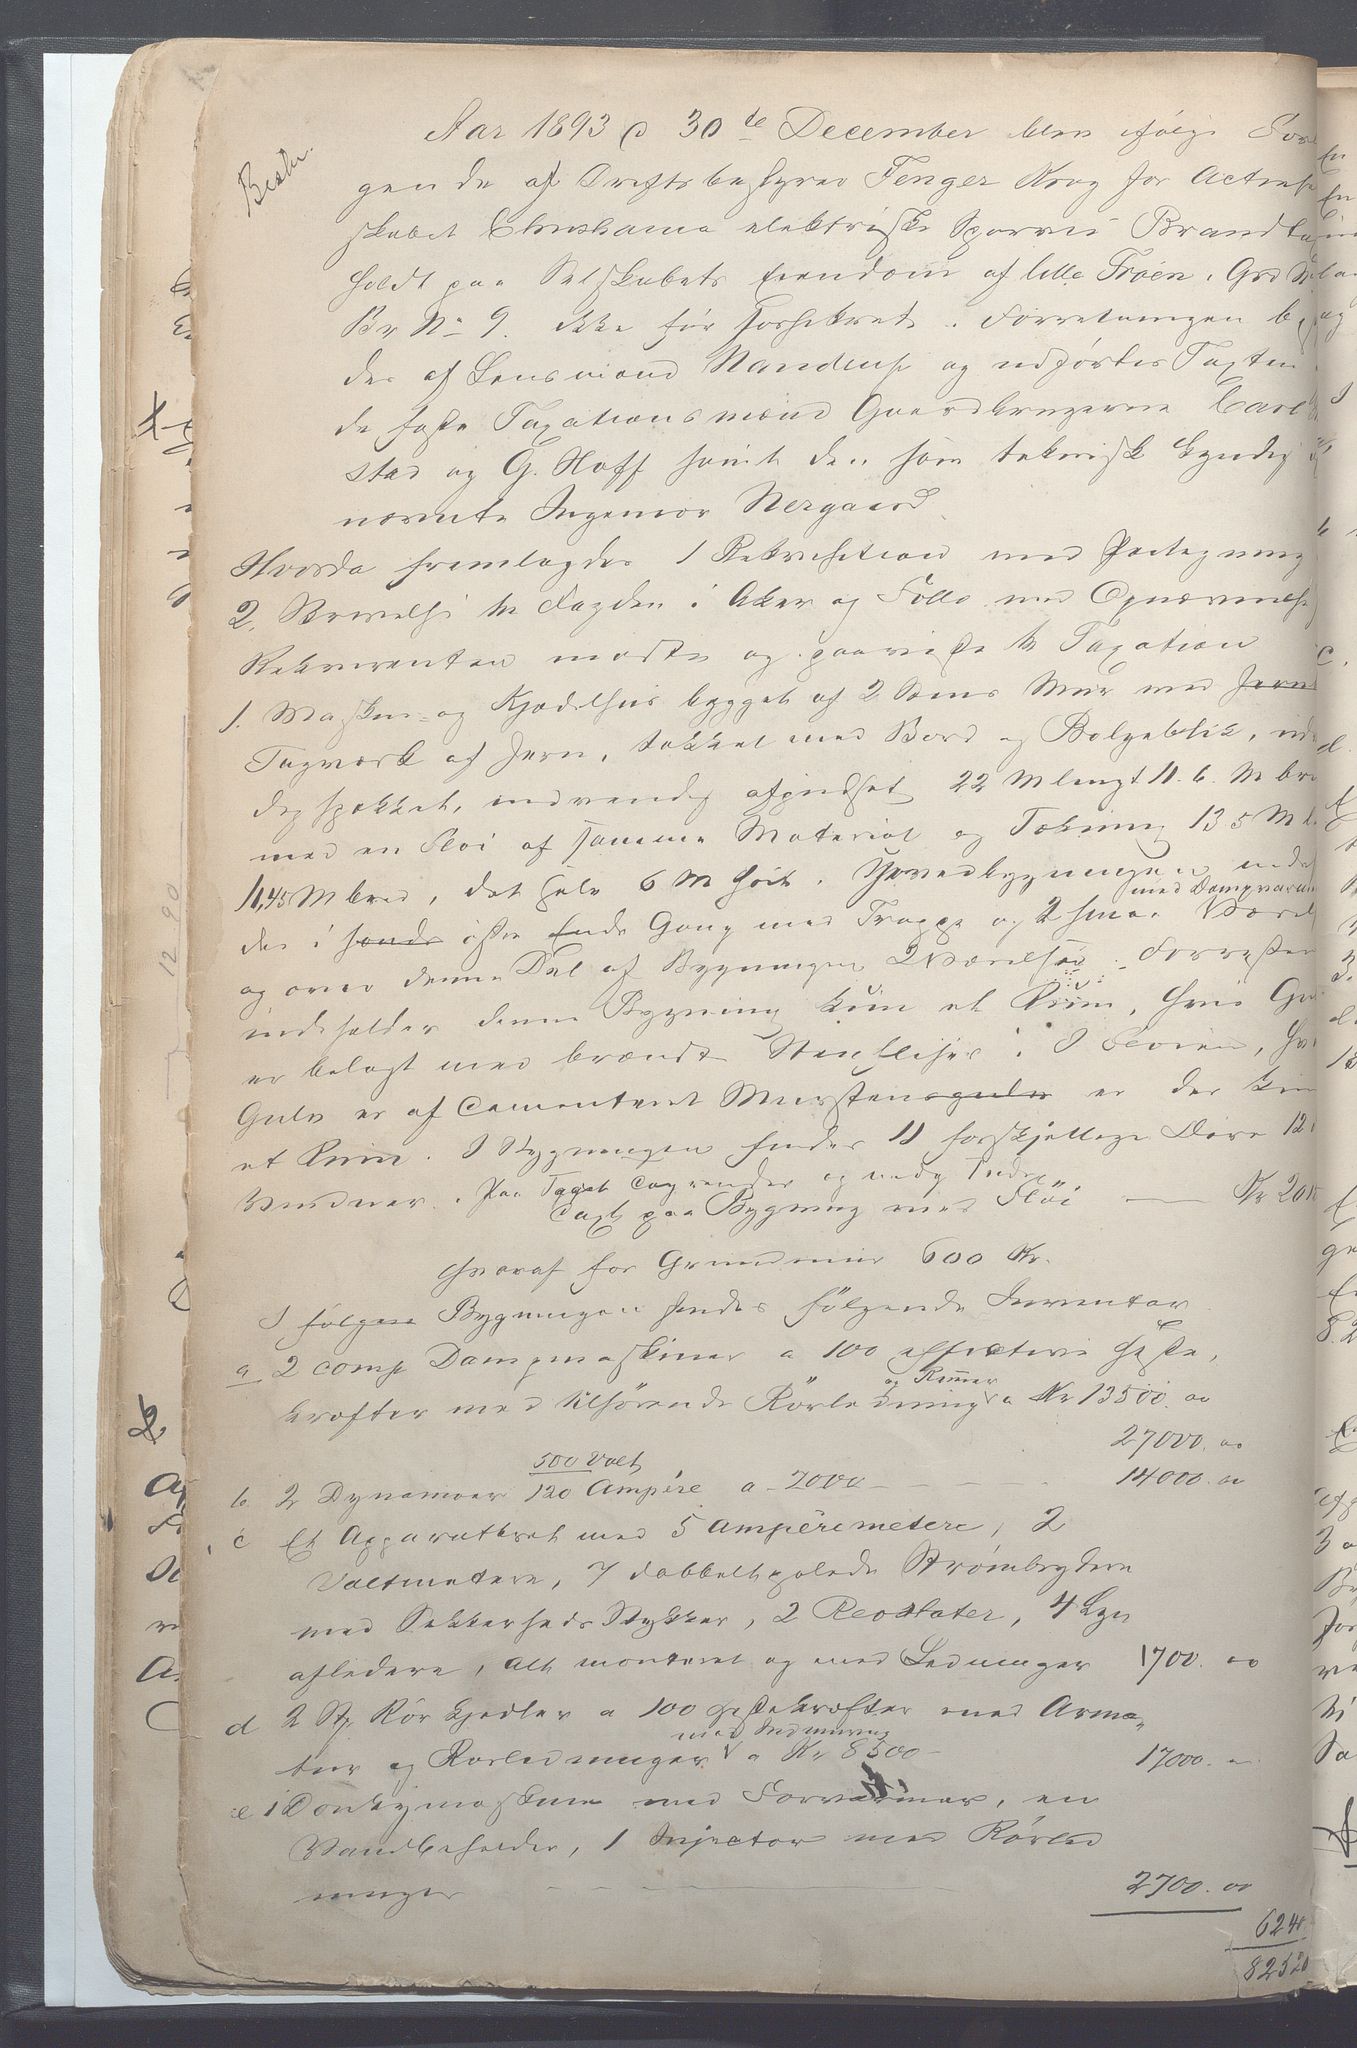 Beskr.
Aar 1893 d 30te December blev ifølge For
gende af Driftsbestyrer Fenger Krog for Actiesel
skabet Christiania elektriske Sporvei Brandtax
holdt paa Selskabets Eiendom af lille Frøen. Grd N
Br No 9. ikke før forsikret. Forretningen b
des af Lensmand Nandrup og udførtes Taxten
de faste Taxationsmænd Gaardbrugerne Carl
stad og G. Hoff samt den som teknisk kyndig
nævnte Ingeniør Nergaard.
Hvorda fremlagdes 1 Rekvisition med Paategning
2. Skrivelse fra Fogden i Aker og Follo med Opnævnelse
Rekvirenten mødte og paaviste til Taxation
1. Maskin- og Kjedelhus bygget af 2 Stens Mur med Jern
Tagværk af Jern, tækket med Bord og Bølgeblik, ud
dig spækket, indvendig afpudset 22 M langt 11.6. M br
med en Fløi af samme Material og Tækning 13 5 M l
11,45 M bred, det hele 6 M høit. Hovedbygningen inde
med Dampvarm
des i søndr østre Ende Gang med Trappe og 2 smaa Værel
og over denne Del af Bygningen 2 Værelser. Forresten
indeholder denne Bygning kun et Rum, hvis Gu
er belagt med brændte Stenfliser. I Fløien, hv
Gulv er af Cementeret Murstensgulv er der kun
et Rum. I Bygningen findes 11 forskjellige Døre 12
Vinduer. Paa Taget Tagrender og nedg
Taxt paa Bygning med Fløi — Kr 201
hvoraf for Grundmur 600 Kr.
I følgen Bygningen findes følgende Inventar
a 2 comp Dampmaskiner a 100 effective Heste,
og Remmer
kræfter med tilhørende Rørledning a Kr 13500. oo
27000. oo
500 Volt
b. 2 Dynamoer 120 Ampére a 7000 — 14000. oo
c Et Apparatbret med 5 Ampèremetere, 2
Voltmetere, 7 dobbeltpolede Strømbrydere
med Sikkerheds Stykker, 2 Reostater, 4 Lyn
afledere, alt monteret og med Ledninger 1700. oo
d 2 St Rör Kjedler a 100 Hestekræfter med Arma-
med Indmuring
tur og Rørledninger a Kr 8500 — 17000. oo
e 1 Donkymaskine med Forvarmer, en
Vandbeholder, 1 Injector med Rørled
ninger — 2700. oo
624
82520